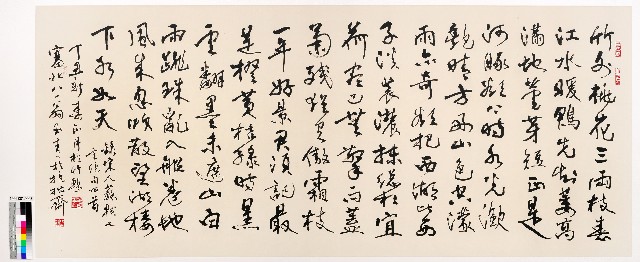 竹外桃花三兩枝春
江水暖鴨先知蔞蒿
滿地蘆芽短正是
河豚欲上時水光瀲
灩晴方好山色空濛
雨亦奇欲把西湖比西
子淡裝濃抹總相宜
荷盡已無擎雨蓋
菊殘猶有傲霜枝
一年好景君須記最
是橙黃橘綠時黑
雲翻墨未遮山白
雨跳珠亂入船卷地
風來忽吹散望湖樓
下水如天
錄宋人蘇軾七
言絕句四首
丁丑新春
塞北八八翁